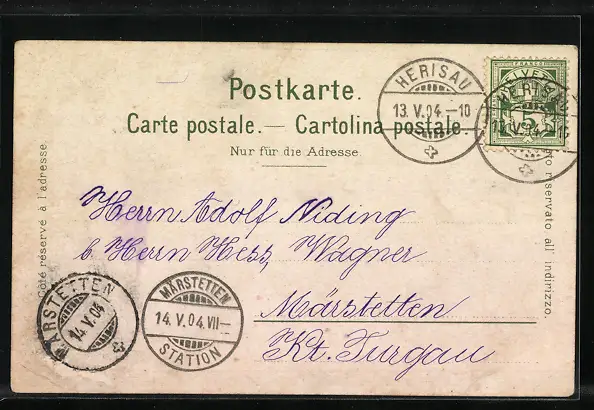 Postkarte.
Carte postale. — Cartolina postale.
Nur für die Adresse.
HERISAU
13.V.04.–10
FRANCO
HELVETIA
5
HERISAU
13.V.04.–10
Côté réservé à l'adresse.
riservato all' indirizzo.
Herrn Adolf Niding
b. Herrn Hess, Wagner
Märstetten
Kt. Turgau
MÄRSTETTEN
14.V.04
MÄRSTETTEN
14.V.04.VII–
STATION